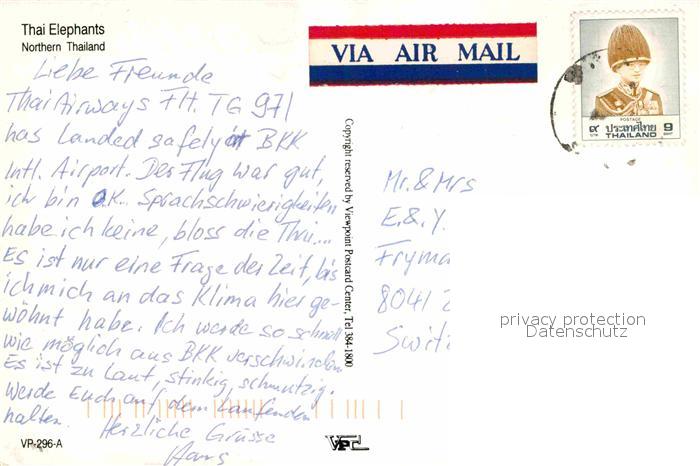 Thai Elephants
Northern Thailand
Liebe Freunde
Thai Airways Flt. TG 971
has Landed safely at BKK
Intl. Airport. Der Flug war gut,
ich bin O.K.. Sprachschwierigkeiten
habe ich keine, bloss die Thai....
Es ist nur eine Frage der Zeit, bis
ich mich an das Klima hier ge-
wöhnt habe. Ich werde so schnell
wie möglich aus BKK verschwinden
Es ist zu Laut, stinkig, schmutzig.
Werde Euch auf dem Laufenden
halten. Herzliche Grüsse
Hans
VP-296-A
Copyright reserved by Viewpoint Postcard Center, Tel 384-1800
VPC
VIA AIR MAIL
POSTAGE
๙ ประเทศไทย 9
บาท THAILAND BAHT
Mr. & Mrs
E. & Y.
Fryma
8041 Z
Switz
privacy protection
Datenschutz